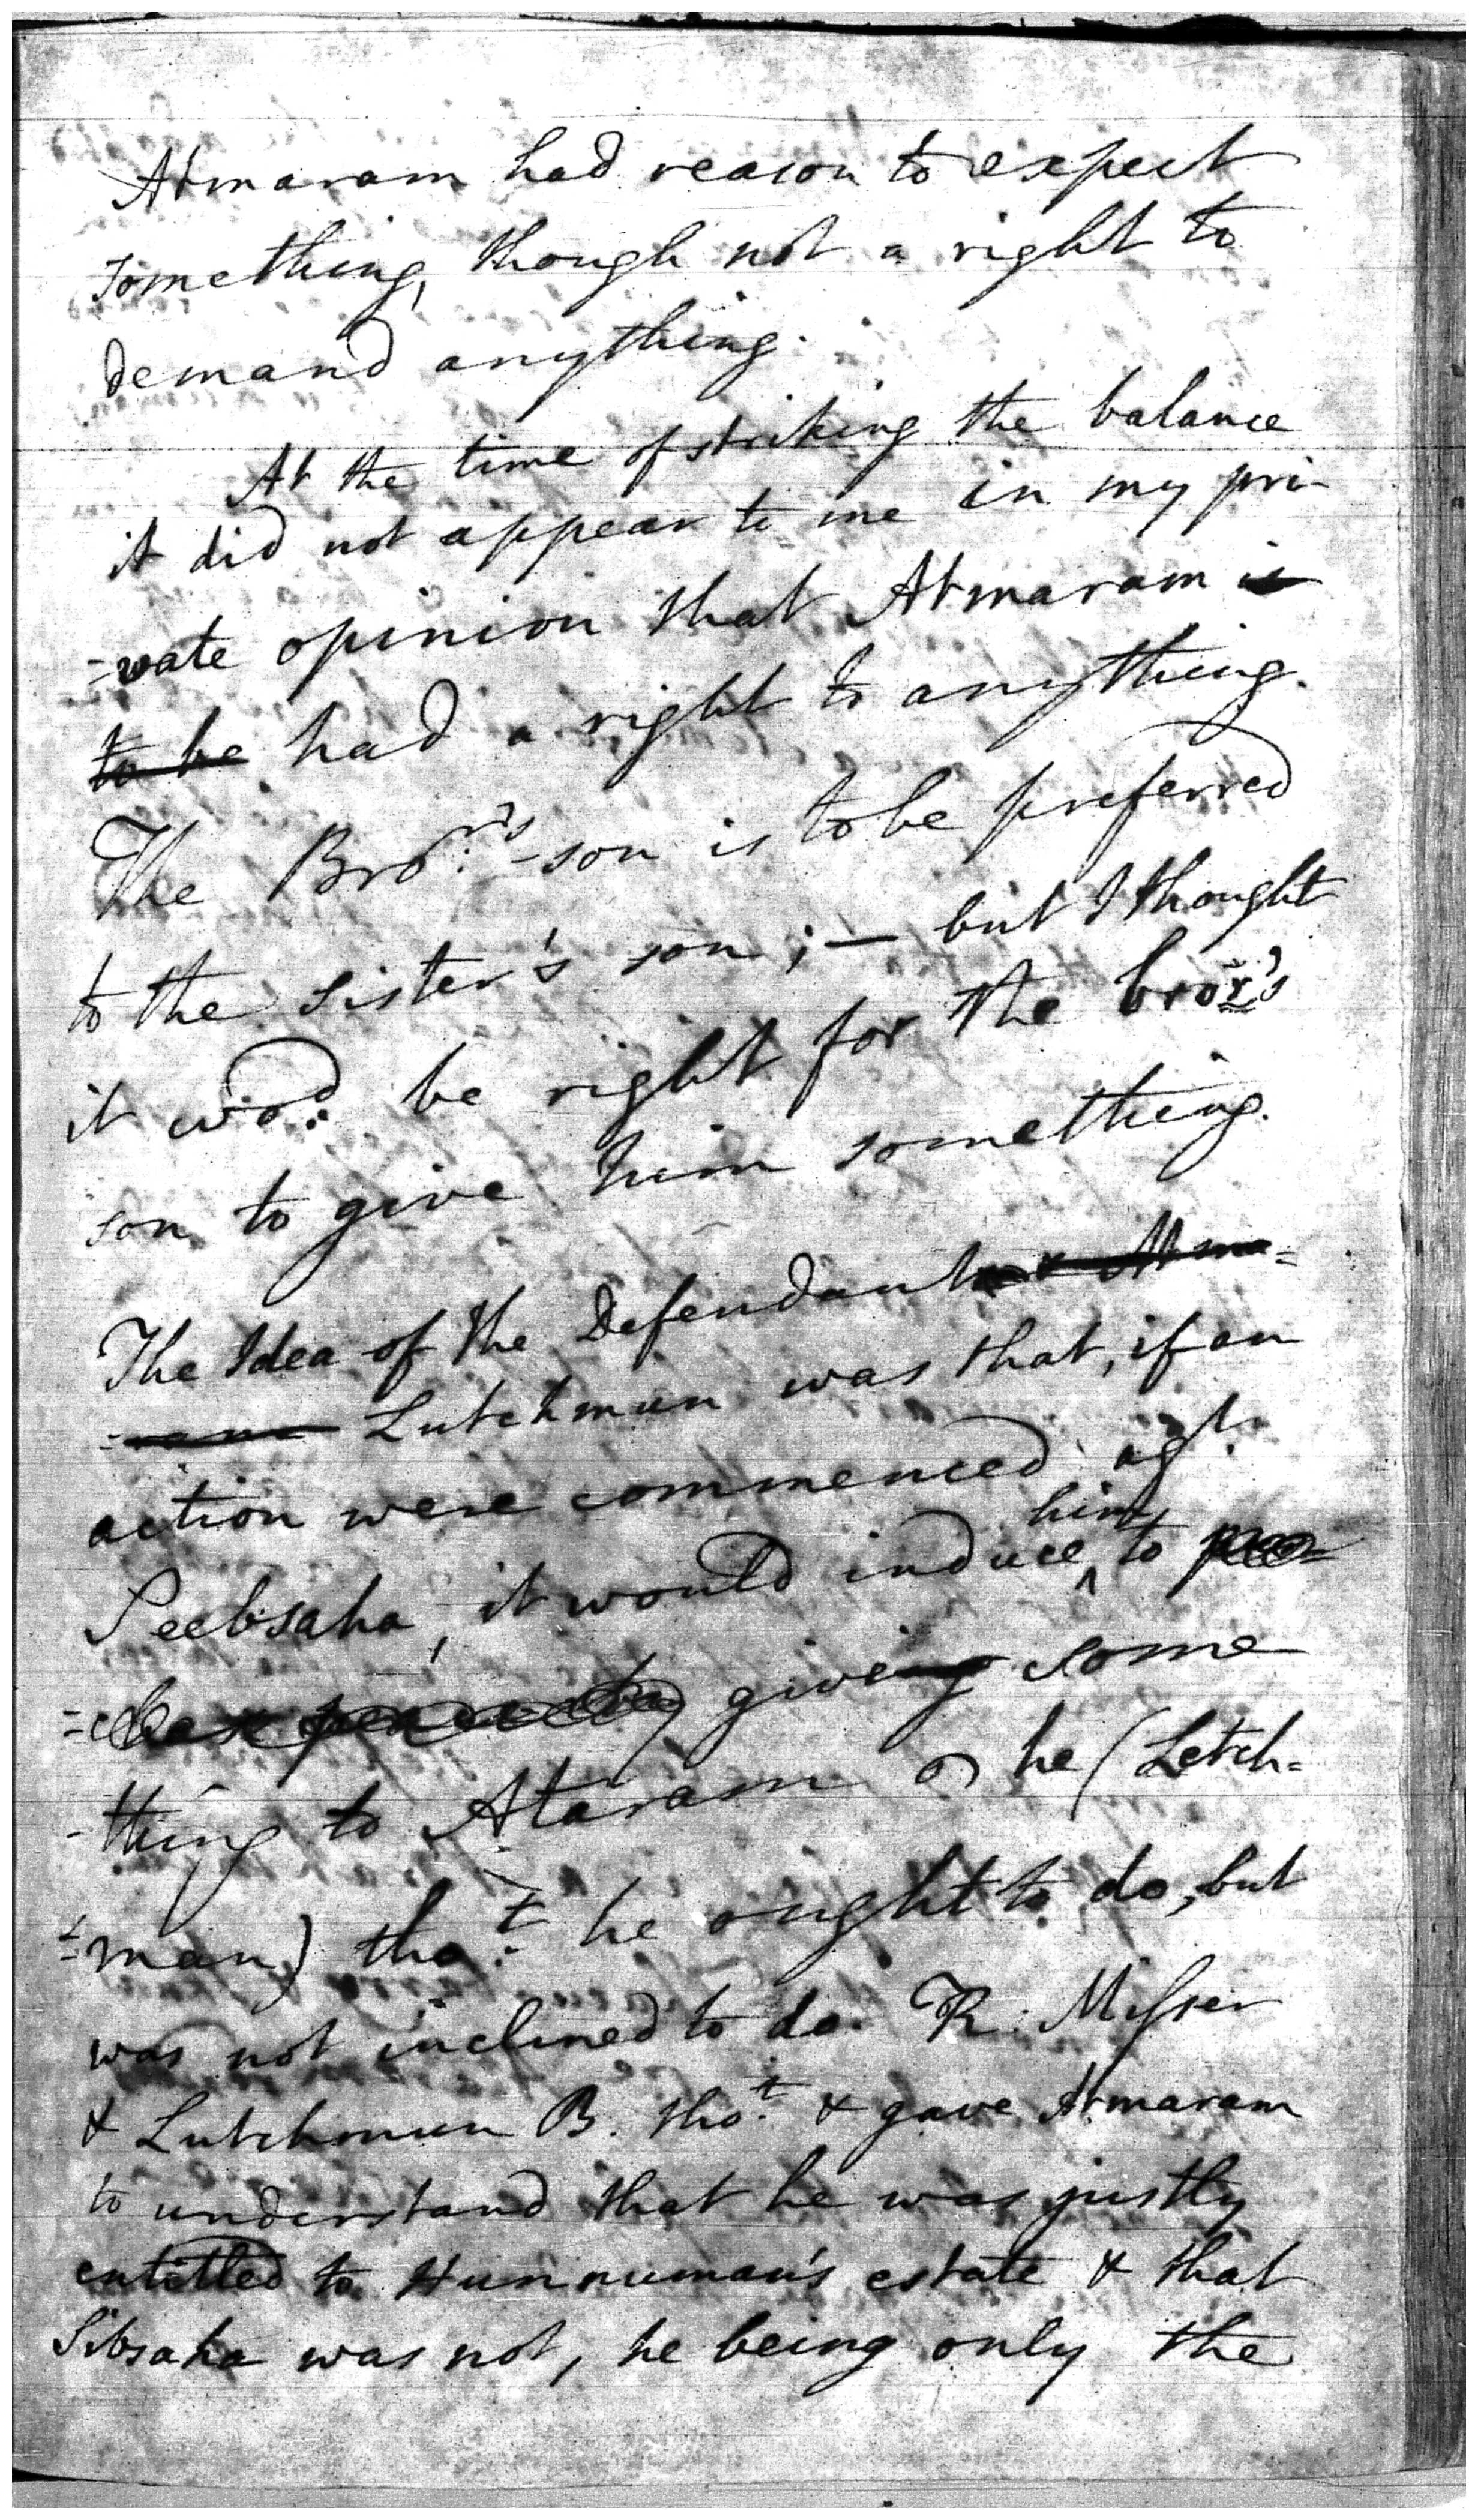 Atmaram had reason to expect
something, though not a right to
demand anything.
At the time of striking the balance
it did not appear to me in my pri-
-vate opinion that Atmaram is
to be had a right to anything.
The Bror's-son is to be preferred
to the sister's son ; — but I thought
it wod: be right for the bror's
son to give him something.
The Idea of the Defendant & Atma=
Lutchmun was that, if an
action were commenced agt.
Seebsaha, it would induce him to
giveing some
-thing to Ataram & he (Letch=
=man) thot. he ought to do, but
was not inclined to do. R. Misser
& Lutchmun B. thot. & gave Atmaram
to understand that he was justly
entitled to Hunnuman's estate & that
Sibsaha was not, he being only the